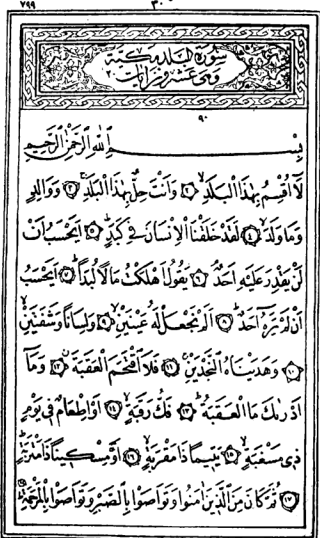 ٧٩٩ ٣٠
سورة البلد مكية
وهى عشرون آيات ٢٠
٩٠
بسم الله الرحمن الرحيم
لَا أُقْسِمُ بِهٰذَا الْبَلَدِ ﴿١﴾ وَأَنْتَ حِلٌّ بِهٰذَا الْبَلَدِ ﴿٢﴾ وَوَالِدٍ
وَمَا وَلَدَ ﴿٣﴾ لَقَدْ خَلَقْنَا الْإِنْسَانَ فِي كَبَدٍ ﴿٤﴾ أَيَحْسَبُ أَنْ
لَنْ يَقْدِرَ عَلَيْهِ أَحَدٌ ﴿٥﴾ يَقُولُ أَهْلَكْتُ مَالًا لُبَدًا ﴿٦﴾ أَيَحْسَبُ
أَنْ لَمْ يَرَهُ أَحَدٌ ﴿٧﴾ أَلَمْ نَجْعَلْ لَهُ عَيْنَيْنِ ﴿٨﴾ وَلِسَانًا وَشَفَتَيْنِ
﴿٩﴾ وَهَدَيْنَاهُ النَّجْدَيْنِ ﴿١٠﴾ فَلَا اقْتَحَمَ الْعَقَبَةَ ﴿١١﴾ وَمَا
أَدْرٰيكَ مَا الْعَقَبَةُ ﴿١٢﴾ فَكُّ رَقَبَةٍ ﴿١٣﴾ أَوْ إِطْعَامٌ فِي يَوْمٍ
ذِي مَسْغَبَةٍ ﴿١٤﴾ يَتِيمًا ذَا مَقْرَبَةٍ ﴿١٥﴾ أَوْ مِسْكِينًا ذَا مَتْرَبَةٍ
﴿١٦﴾ ثُمَّ كَانَ مِنَ الَّذِينَ اٰمَنُوا وَتَوَاصَوْا بِالصَّبْرِ وَتَوَاصَوْا بِالْمَرْحَمَةِ ﴿١٧﴾